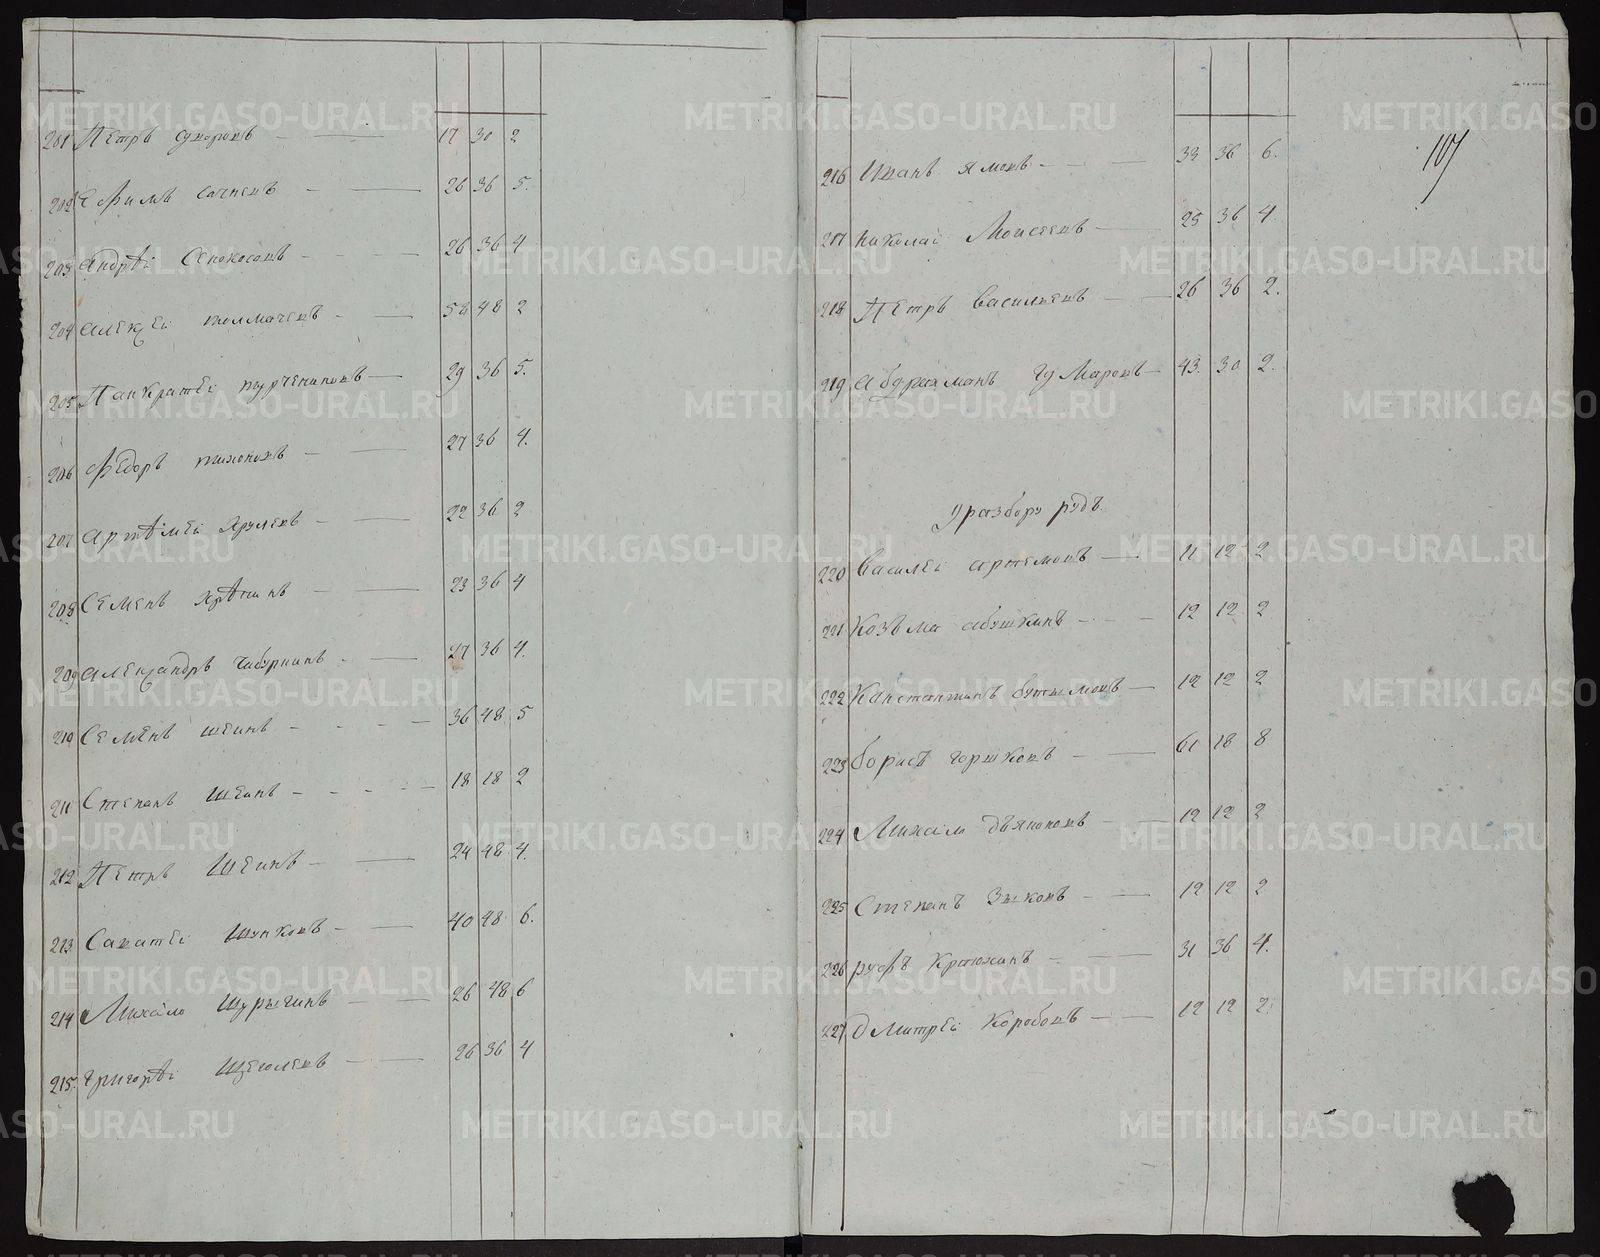 201 Петръ Суворовъ 17 30 2
202 Ефимъ Сычневъ 26 36 5.
203 Андрѣй Сенокосовъ 26 36 4
204 Алексеi толмачевъ 58 48 2
205 Панкратеi турчениновъ 29 36 5.
206 Федоръ тихоновъ 27 36 4.
207 Артѣмеi Хрулевъ 22 36 2
208 Семенъ хрѣнинъ 23 36 4
209 Александръ Чабурнинъ 27 36 4.
210 Семенъ шеинъ 36 48 5
211 Степанъ Шеинъ 18 18 2
212 Петръ Шеинъ 24 48 4.
213 Саватеi Шунковъ 40 48 6.
214 Михаiло Шурыгинъ 26 48 6
215 Григорѣi Щеголевъ 26 36 4
107
216 Иванъ Ямовъ 33 36 6.
217 Николаi Моисеевъ 25 36 4.
218 Петръ Васильевъ 26 36 2.
219 Абдрахманъ гумаровъ 43. 30 2.
У разбору рудъ.
220 Василеi артемовъ 11 12 2
221 Козъма абушкинъ 12 12 2
222 Канстантинъ бутымовъ 12 12 2
223 борисъ горшковъ 61 18 8
224 Михаiло дьяконовъ 12 12 2
225 Степанъ Зыковъ 12 12 2
226 руфъ Крюхинъ 31 36 4.
227 Дмитреi Коробовъ 12 12 2
METRIKI.GASO-URAL.RU